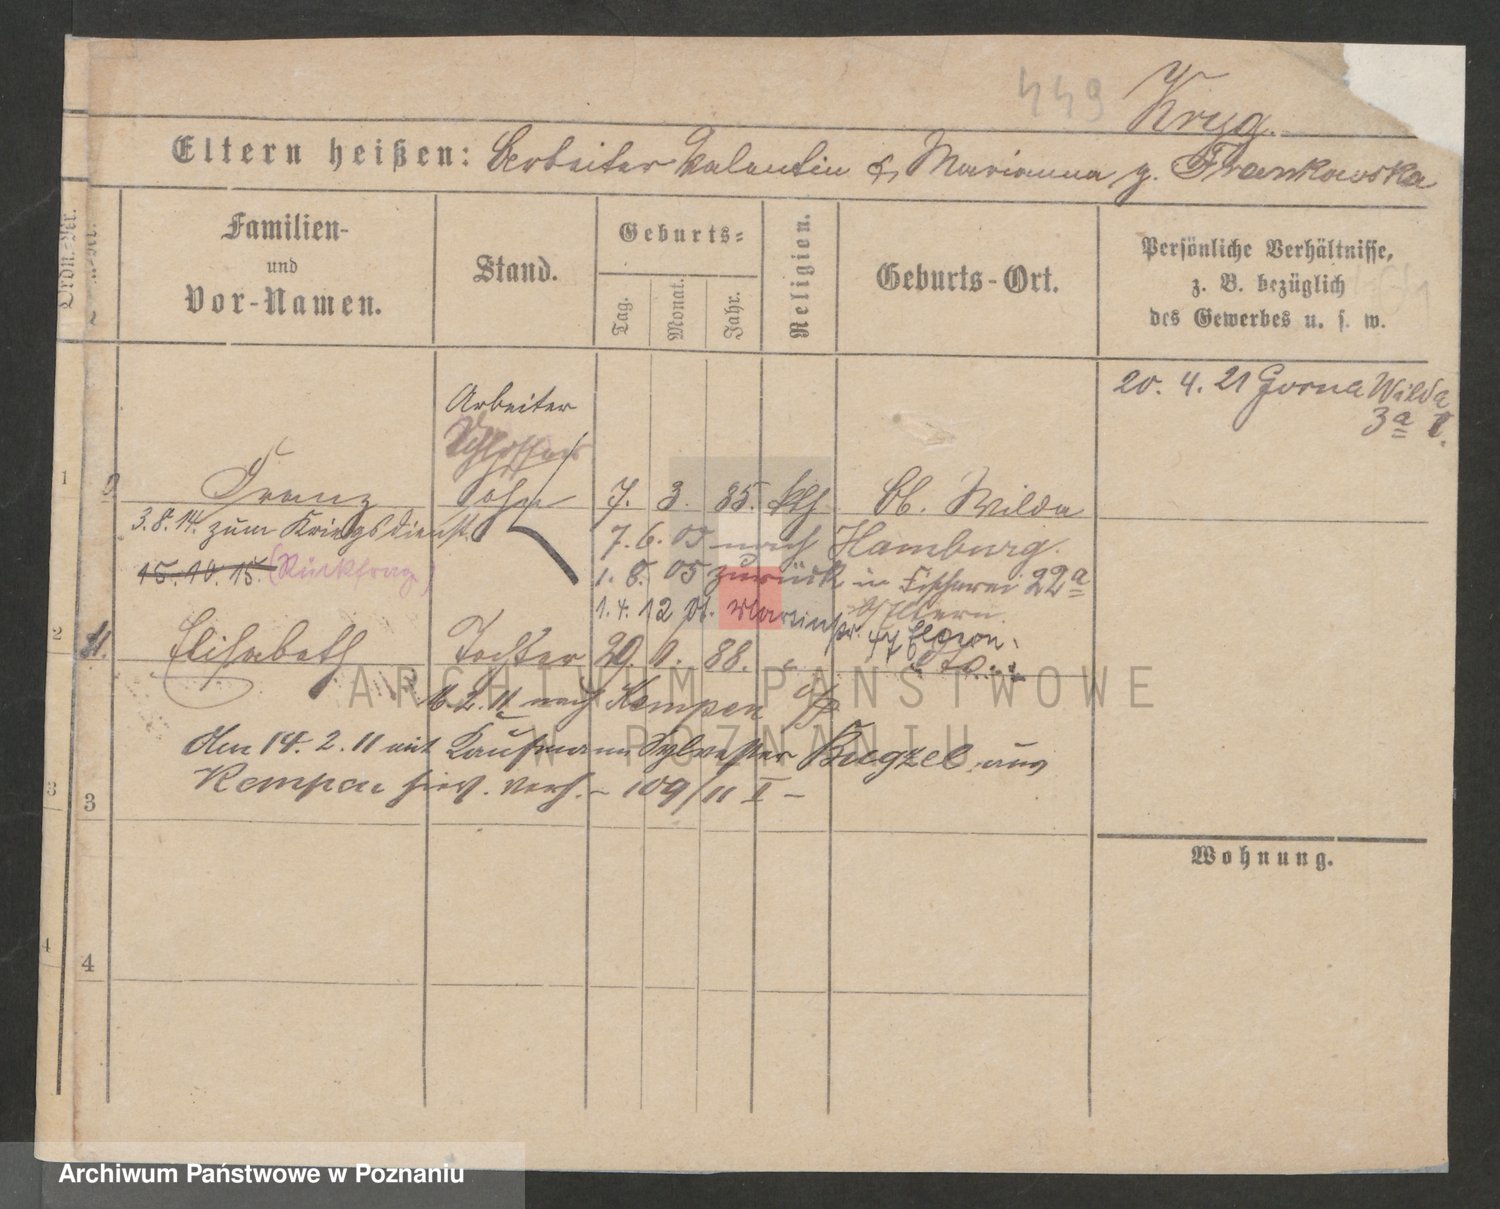 449 Kryg.
Eltern heißen: Arbeiter Valentin & Marianna g. Frankowska
Ordn.-Nr.
Familien-
und
Vor-Namen.
Stand.
Geburts-
Tag.
Monat.
Jahr.
Religion.
Geburts-Ort.
Persönliche Verhältnisse,
z. B. bezüglich
des Gewerbes u. s. w.
20. 4. 21 Gorna Wilda
3a
Arbeiter
Schlosser
1 Franz Sohn 7. 3. 85. kth Ob. Wilda
3.8.14. zum Kriegsdienst. 7. 6. 05 nach Hamburg.
15. 10. 15. (Rückfrag.) 1. 8. 05 zurück in Fischerei 22a
1. 4. 12 Eltern.
2 Elisabeth Tochter 29. 88. "
2. 11 nach Kempen
Am 14. 2. 11 mit Kaufmann Sylvester aus
Kempen verh. – 109/11 I –
3
3
4
4
Wohnung.
ARCHIWUM PAŃSTWOWE
W POZNANIU
Archiwum Państwowe w Poznaniu